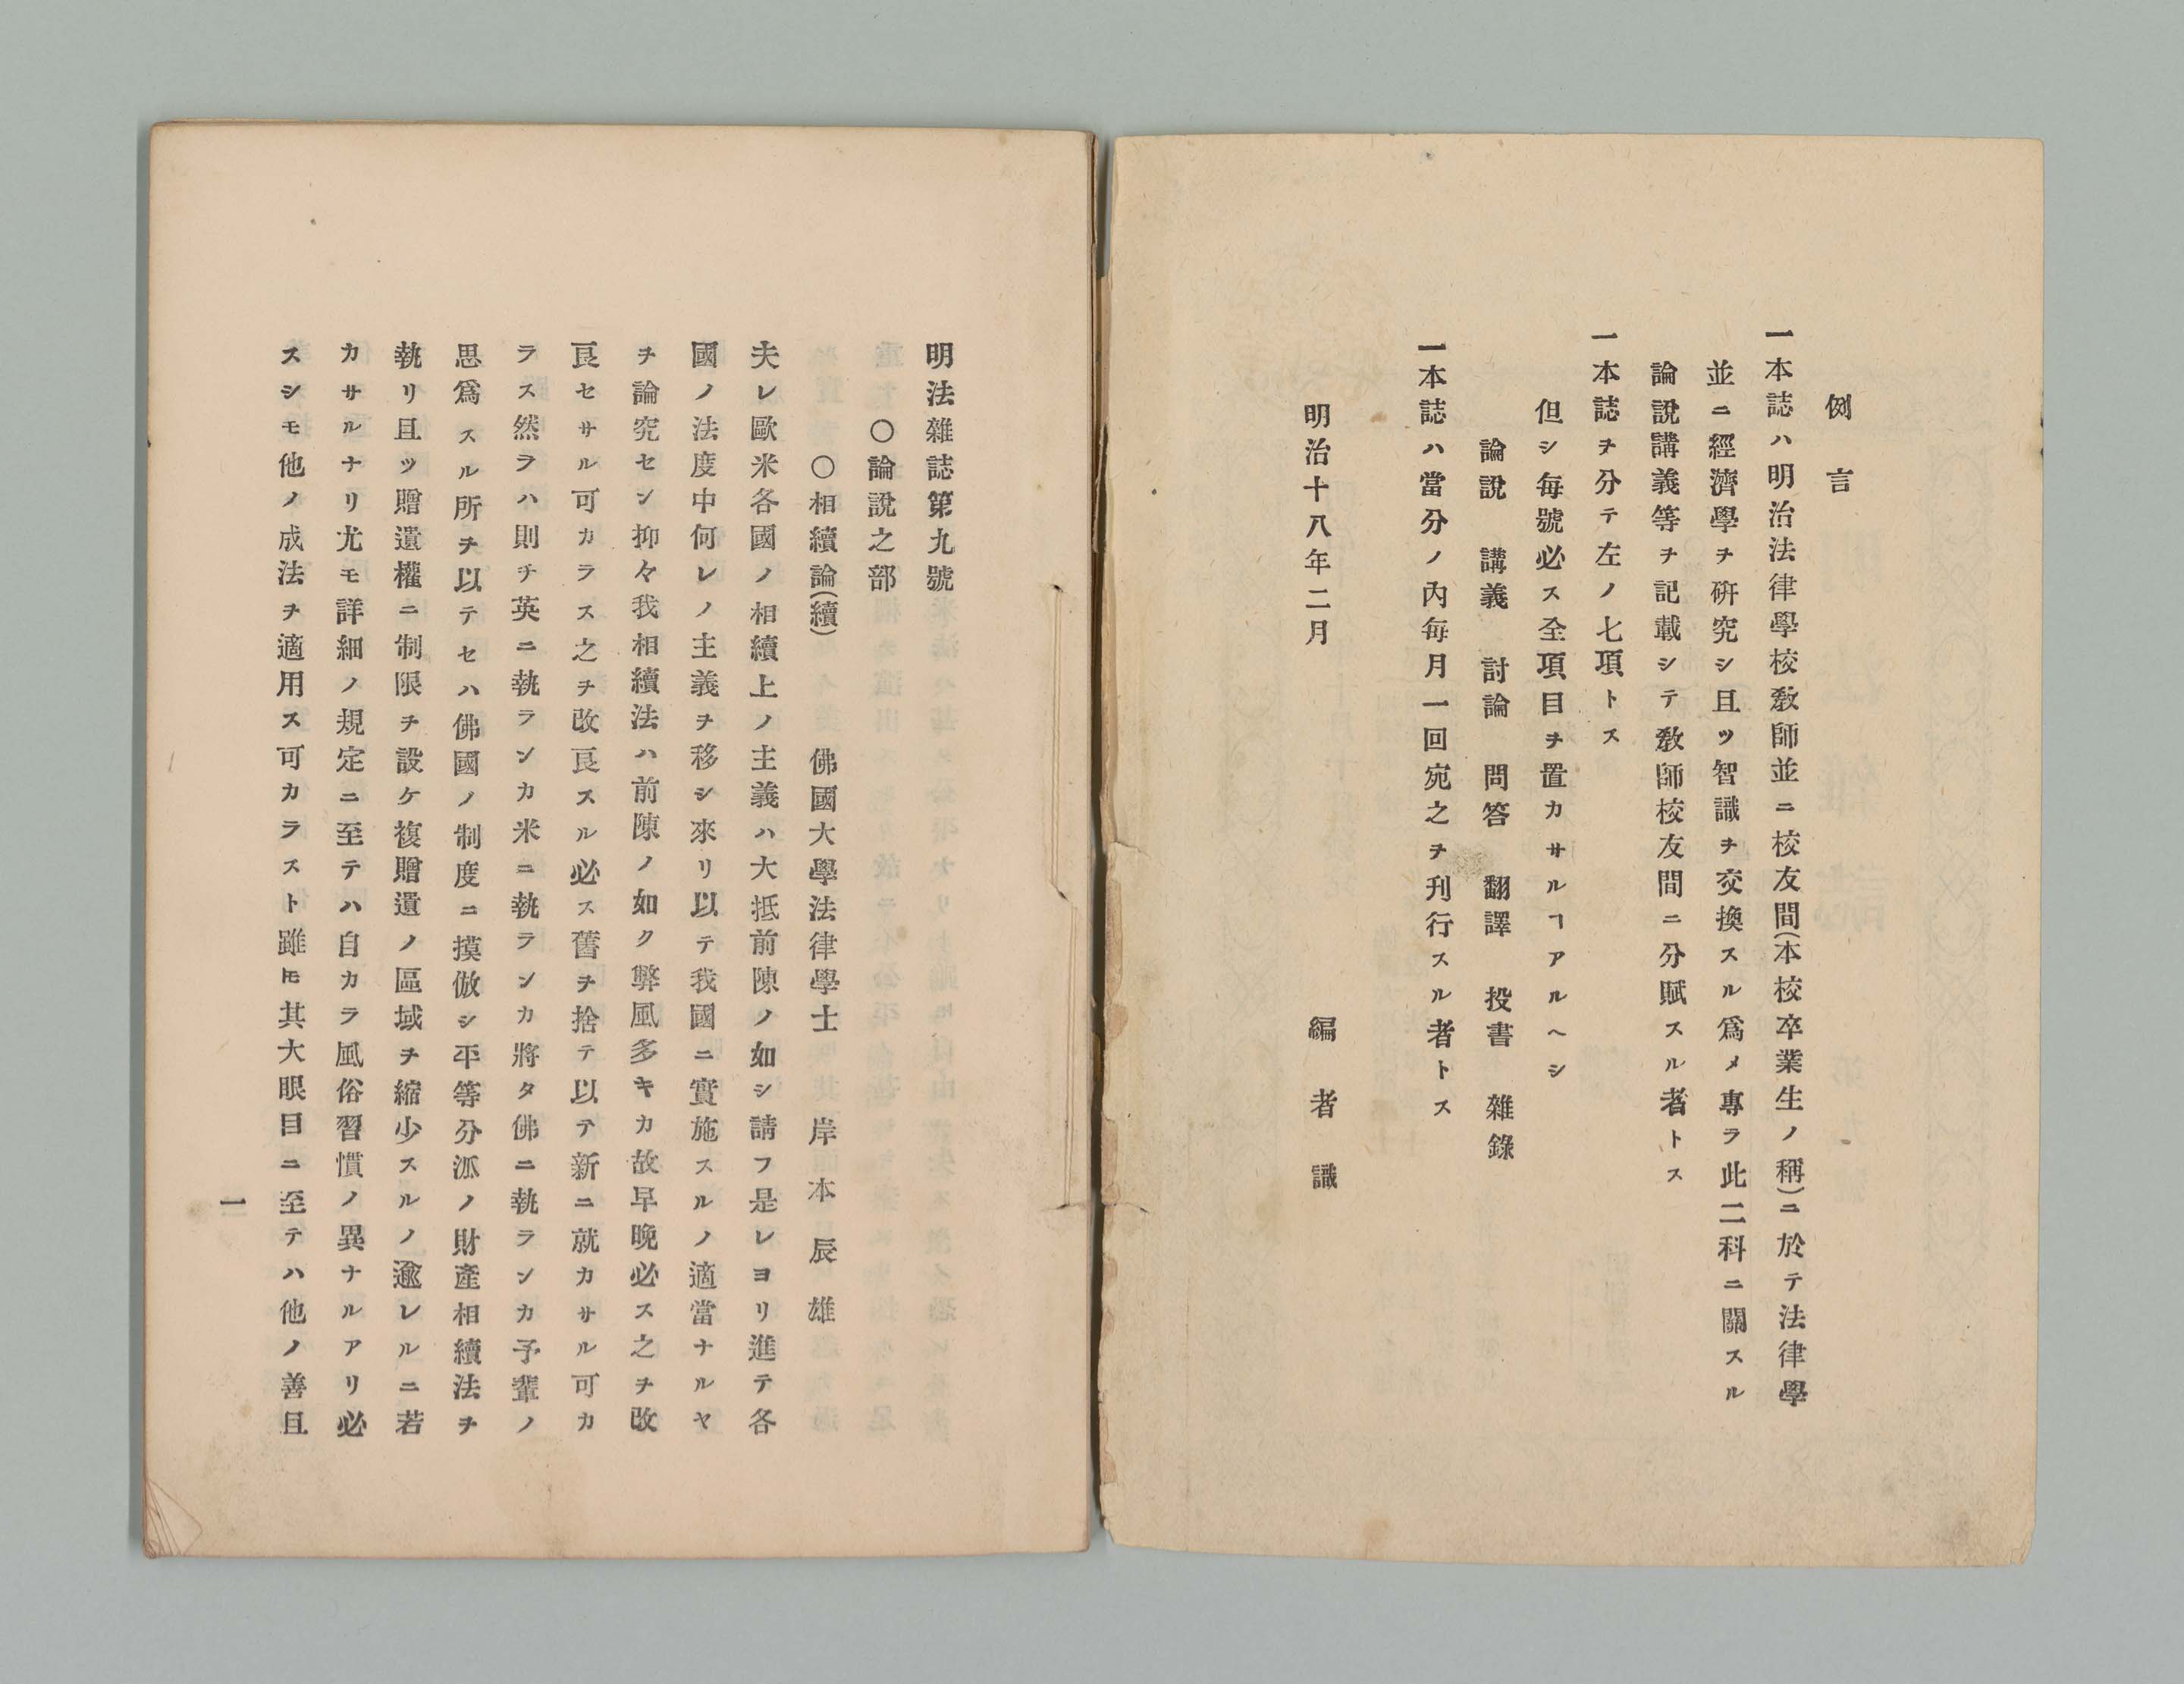 例言
一本誌ハ明治法律學校敎師並ニ校友間(本校卒業生ノ稱)ニ於テ法律學
並ニ經濟學ヲ硏究シ且ツ智識ヲ交換スル爲メ專ラ此二科ニ關スル
論說講義等ヲ記載シテ敎師校友間ニ分賦スル者トス
一本誌ヲ分テ左ノ七項トス
但シ毎號必ス全項目ヲ置カサルヿアルヘシ
論說 講義 討論 問答 翻譯 投書 雜錄
一本誌ハ當分ノ內每月一回宛之ヲ刊行スル者トス
明治十八年二月 編者識
明法雜誌第九號
〇論說之部
〇相續論(續) 佛國大學法律學士 岸本辰雄
夫レ歐米各國ノ相續上ノ主義ハ大抵前陳ノ如シ請フ是レヨリ進テ各
國ノ法度中何レノ主義ヲ移シ來リ以テ我國ニ實施スルノ適當ナルヤ
ヲ論究セン抑々我相續法ハ前陳ノ如ク弊風多キカ故早晚必ス之ヲ改
良セサル可カラス之ヲ改良スル必ス舊ヲ捨テ以テ新ニ就カサル可カ
ラス然ラハ則チ英ニ執ランカ米ニ執ランカ將タ佛ニ執ランカ予輩ノ
思爲スル所ヲ以テセハ佛國ノ制度ニ摸倣シ平等分派ノ財產相續法ヲ
執リ且ツ贈遺權ニ制限ヲ設ケ複贈遺ノ區域ヲ縮少スルノ逾レルニ若
カサルナリ尤モ詳細ノ規定ニ至テハ自カラ風俗習慣ノ異ナルアリ必
スシモ他ノ成法ヲ適用ス可カラスト雖𪜈其大眼目ニ至テハ他ノ善且
一